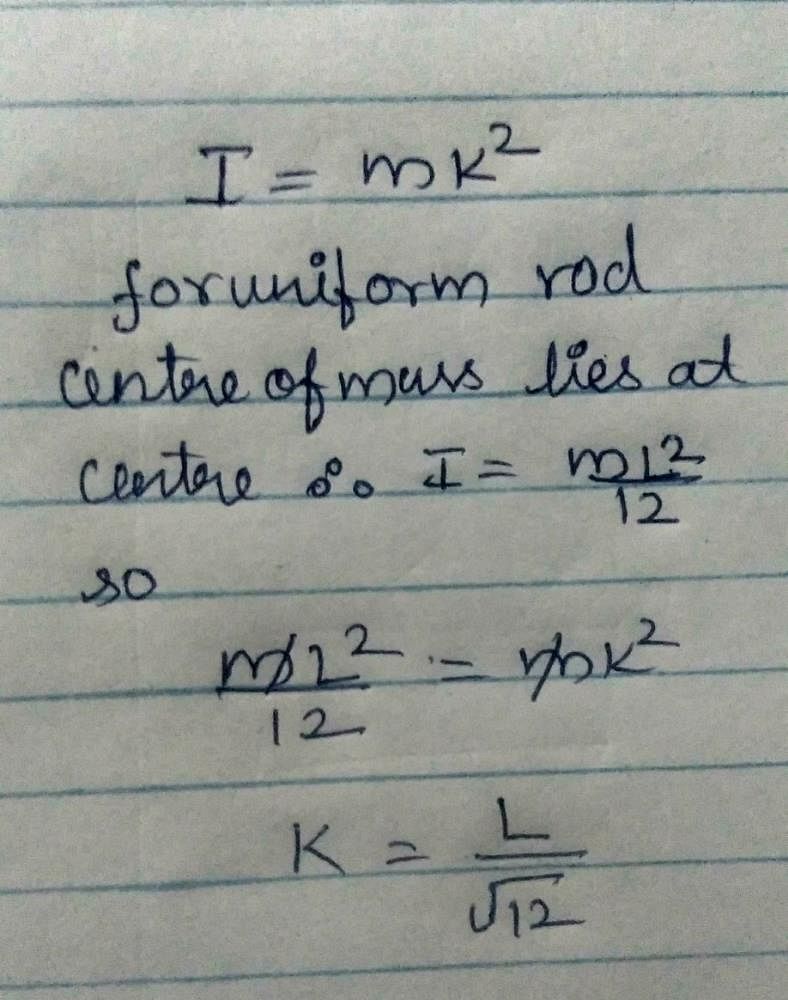 I = mK²
for uniform rod
centre of mass lies at
centre ∴ I = mL²/12
so
mL²/12 = mK²
K = L/√12